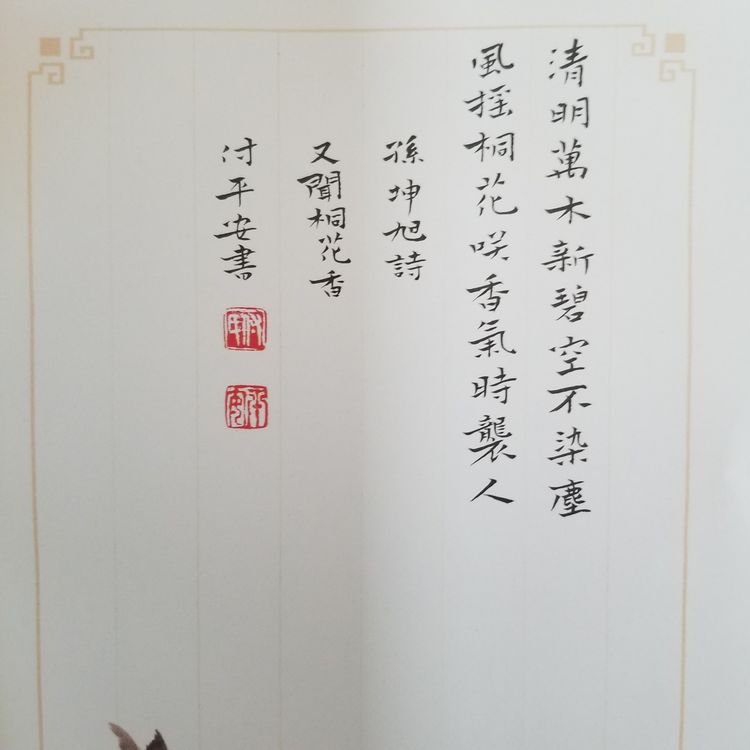 清明萬木新碧空不染塵
風摇桐花咲香氣時襲人
孫坤旭詩
又聞桐花香
付平安書